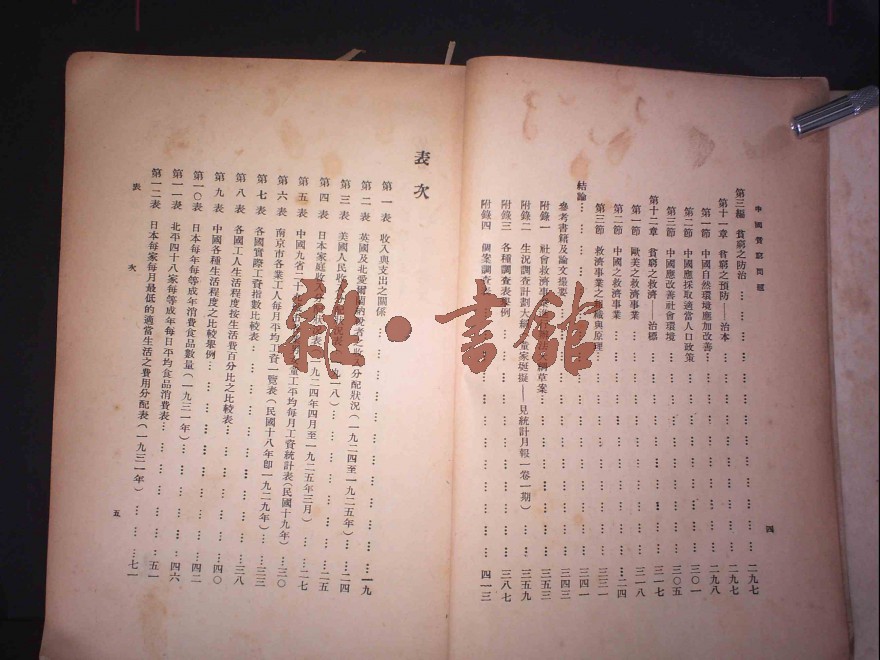 中國貧窮問題
第三編 貧窮之防治………二九七
第十一章 貧窮之預防——治本………二九七
第一節 中國自然環境應加改善………二九八
第二節 中國應採取適當人口政策………三〇一
第三節 中國應改善社會環境………三〇五
第十二章 貧窮之救濟——治標………三一七
第一節 歐美之救濟事業………三一八
第二節 中國之救濟事業………二四
第三節 救濟事業之組織與原理………三三一
結論………三四一
參考書籍及論文撮要………三四三
附錄一 社會救濟事業草案………三五三
附錄二 生況調查計劃大綱(童家埏擬——見統計月報一卷一期)………三五九
附錄三 各種調查表舉例………三八七
附錄四 個案調查………四一三
四
表次
第一表 收入與支出之關係………一九
第二表 英國及北愛爾蘭納稅者之收入分配狀況(一九二四至一九二五年)………二四
第三表 美國人民收入分配狀況表(一九一八)………二四
第四表 日本家庭收入分配狀況表(一九二四年四月至一九二五年三月)………二五
第五表 中國九省二十九童工平均每月工資統計表(民國十九年)………二七
第六表 南京市各業工人每月平均工資一覽表(民國十八年卽一九二九年)………三〇
第七表 各國實際工資指數比較表………三三
第八表 各國工人生活程度按生活費百分比之比較表………三八
第九表 中國各種生活程度之比較舉例………四〇
第一〇表 日本每年每等成年消費食品數量(一九三一年)………四二
第一一表 北平四十八家每等成年每日平均食品消費表………四六
第一二表 日本每家每月最低的適當生活之費用分配表(一九三一年)………五一
………七一
表次
五
雜·書館